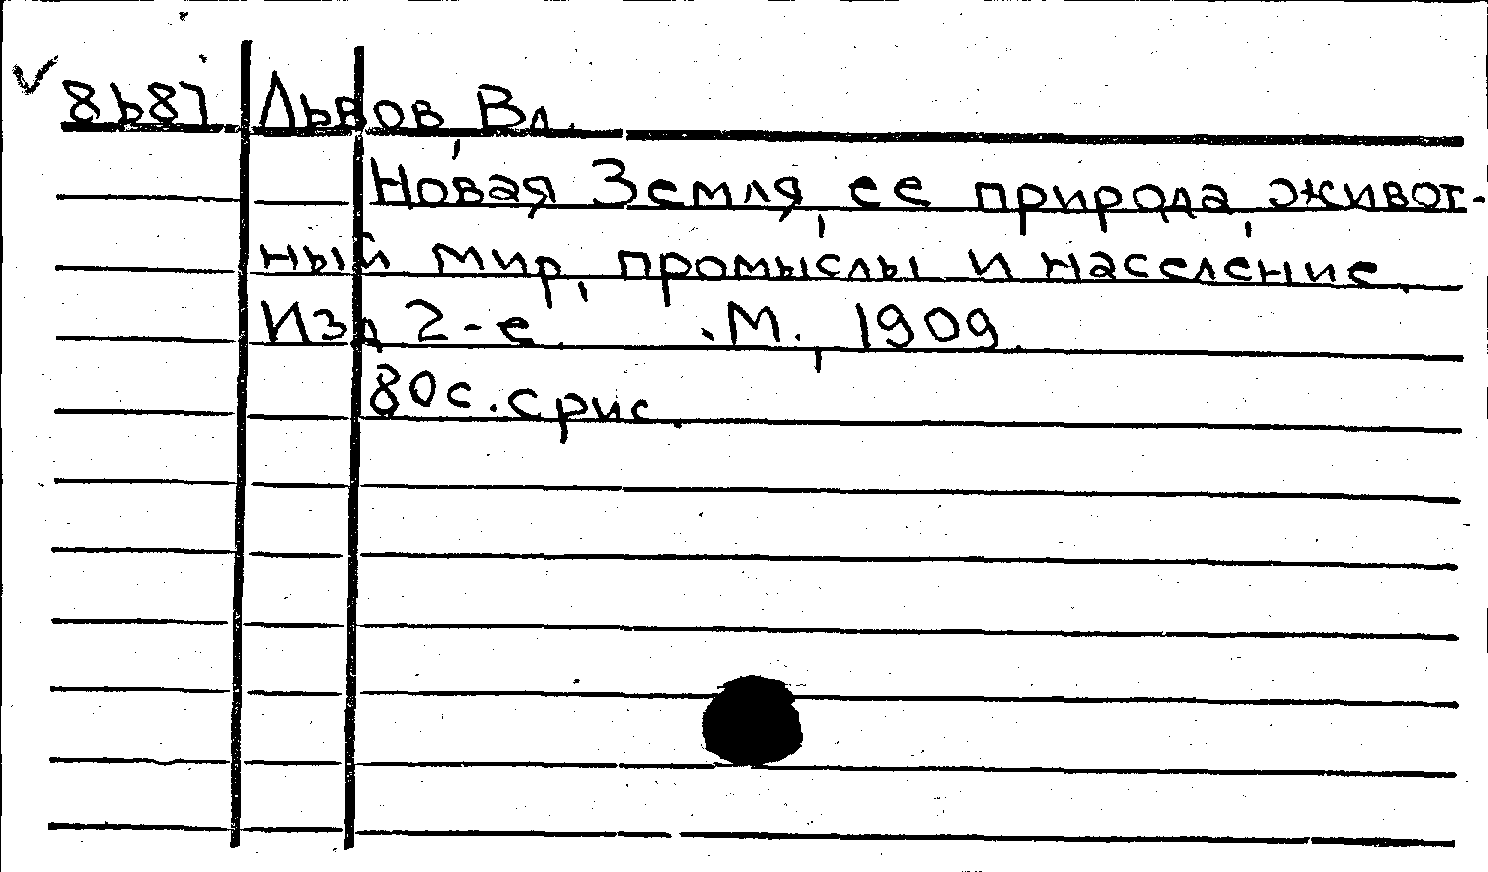 8b87 Львов, Вл.
Новая Земля, ее природа, живот-
ный мир, промыслы и население.
Изд 2-е. М., 1909.
80с. с рис.